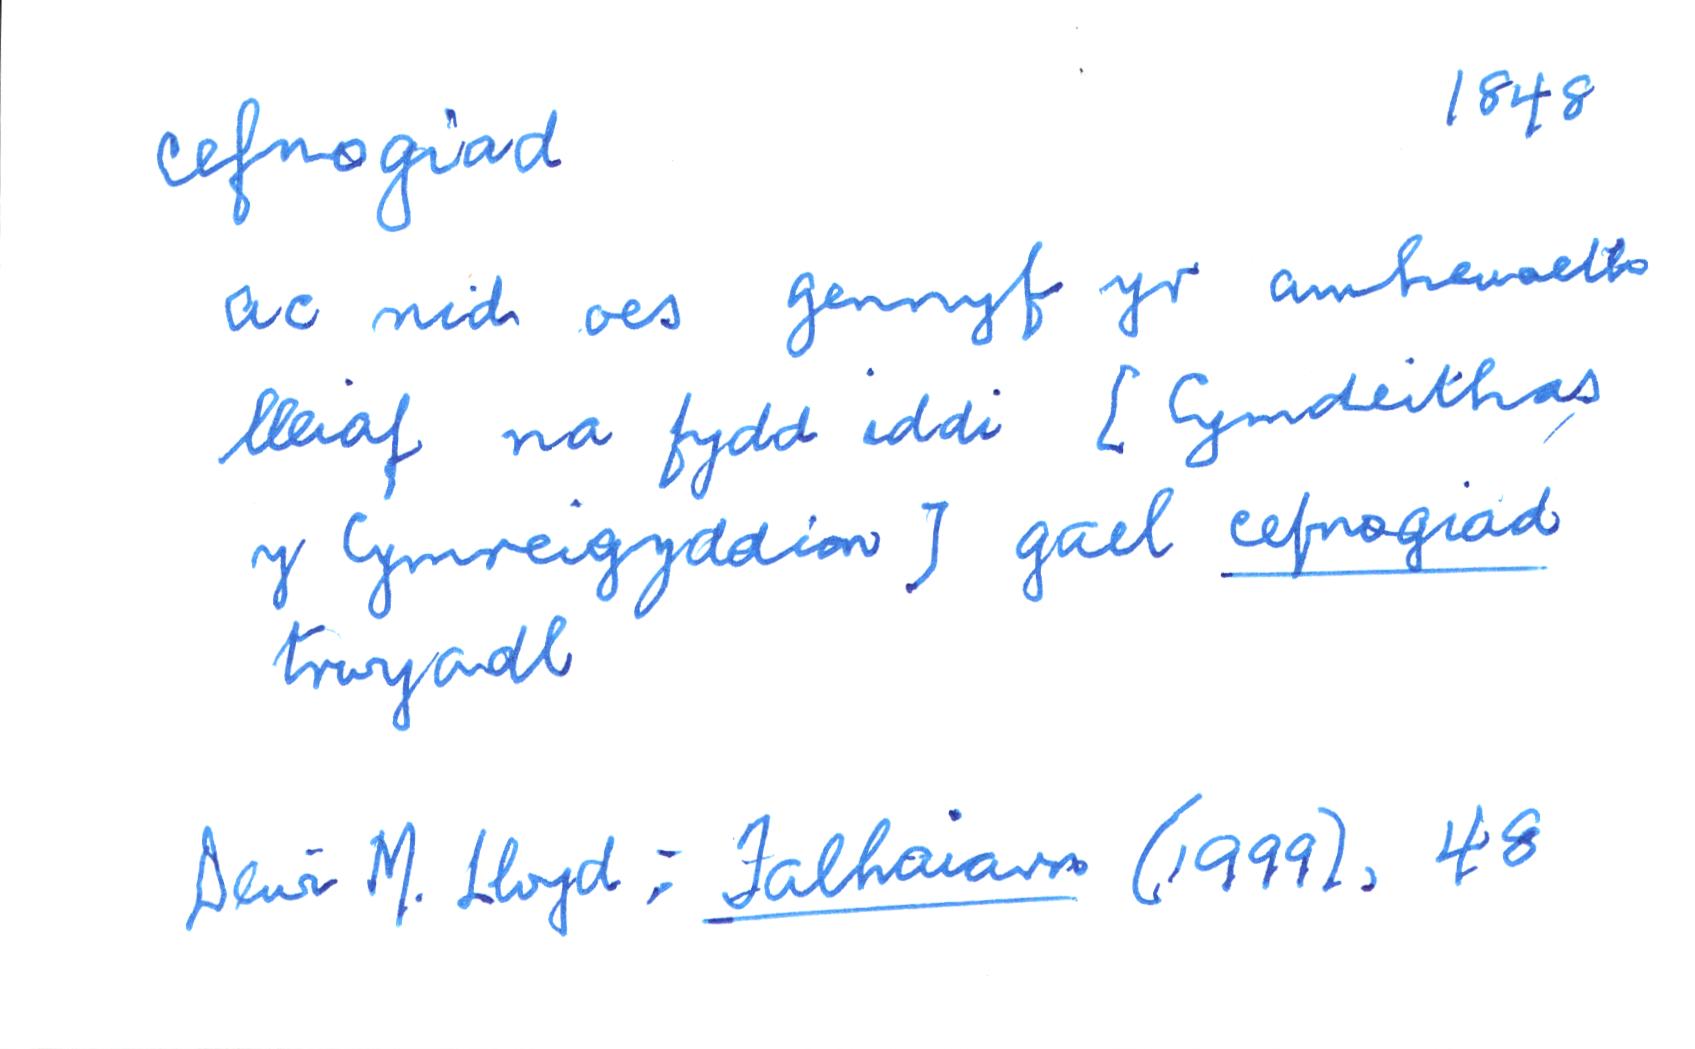 cefnogiad 1848
ac nid oes gennyf yr amheuaeth
lleiaf na fydd iddi [Cymdeithas
y Cymreigyddion] gael cefnogiad
trwyadl
Dewi M. Lloyd: Talhaiarn (1999), 48